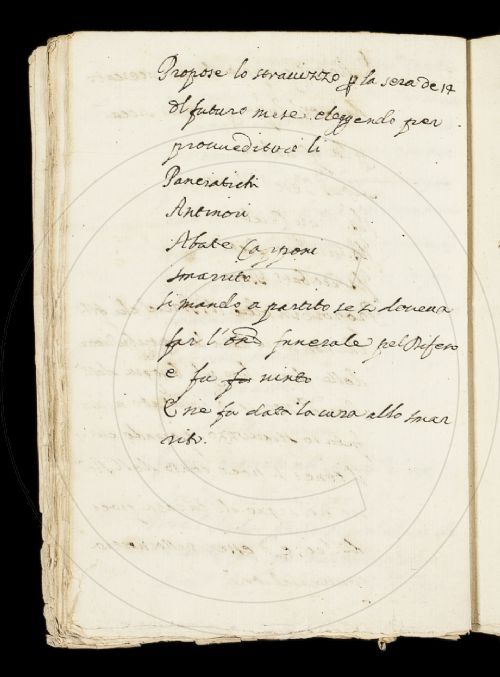 Propose lo stravizzo p la sera de 17
dl futuro mese eleggendo per
provveditori li
Panciatichi
Antinori
Abate Capponi
Smarrito
Si mandò a partito se si doveva
far l'orñe funerale pel Difeso
e fu fu vinto
E ne fu data la cura allo Smar
rito.